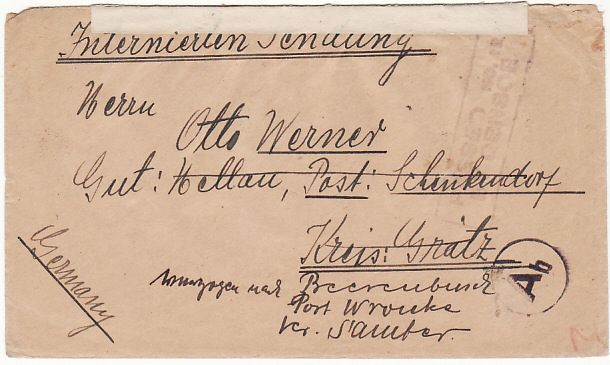 Internierten Sendung
Herrn
Otto Werner
Gut: Mellau, Post: Schenkendorf
Kreis: Grätz
Germany
umgezogen nach Beerenbusch
Post Wronke
Kr. Samter.
Ab